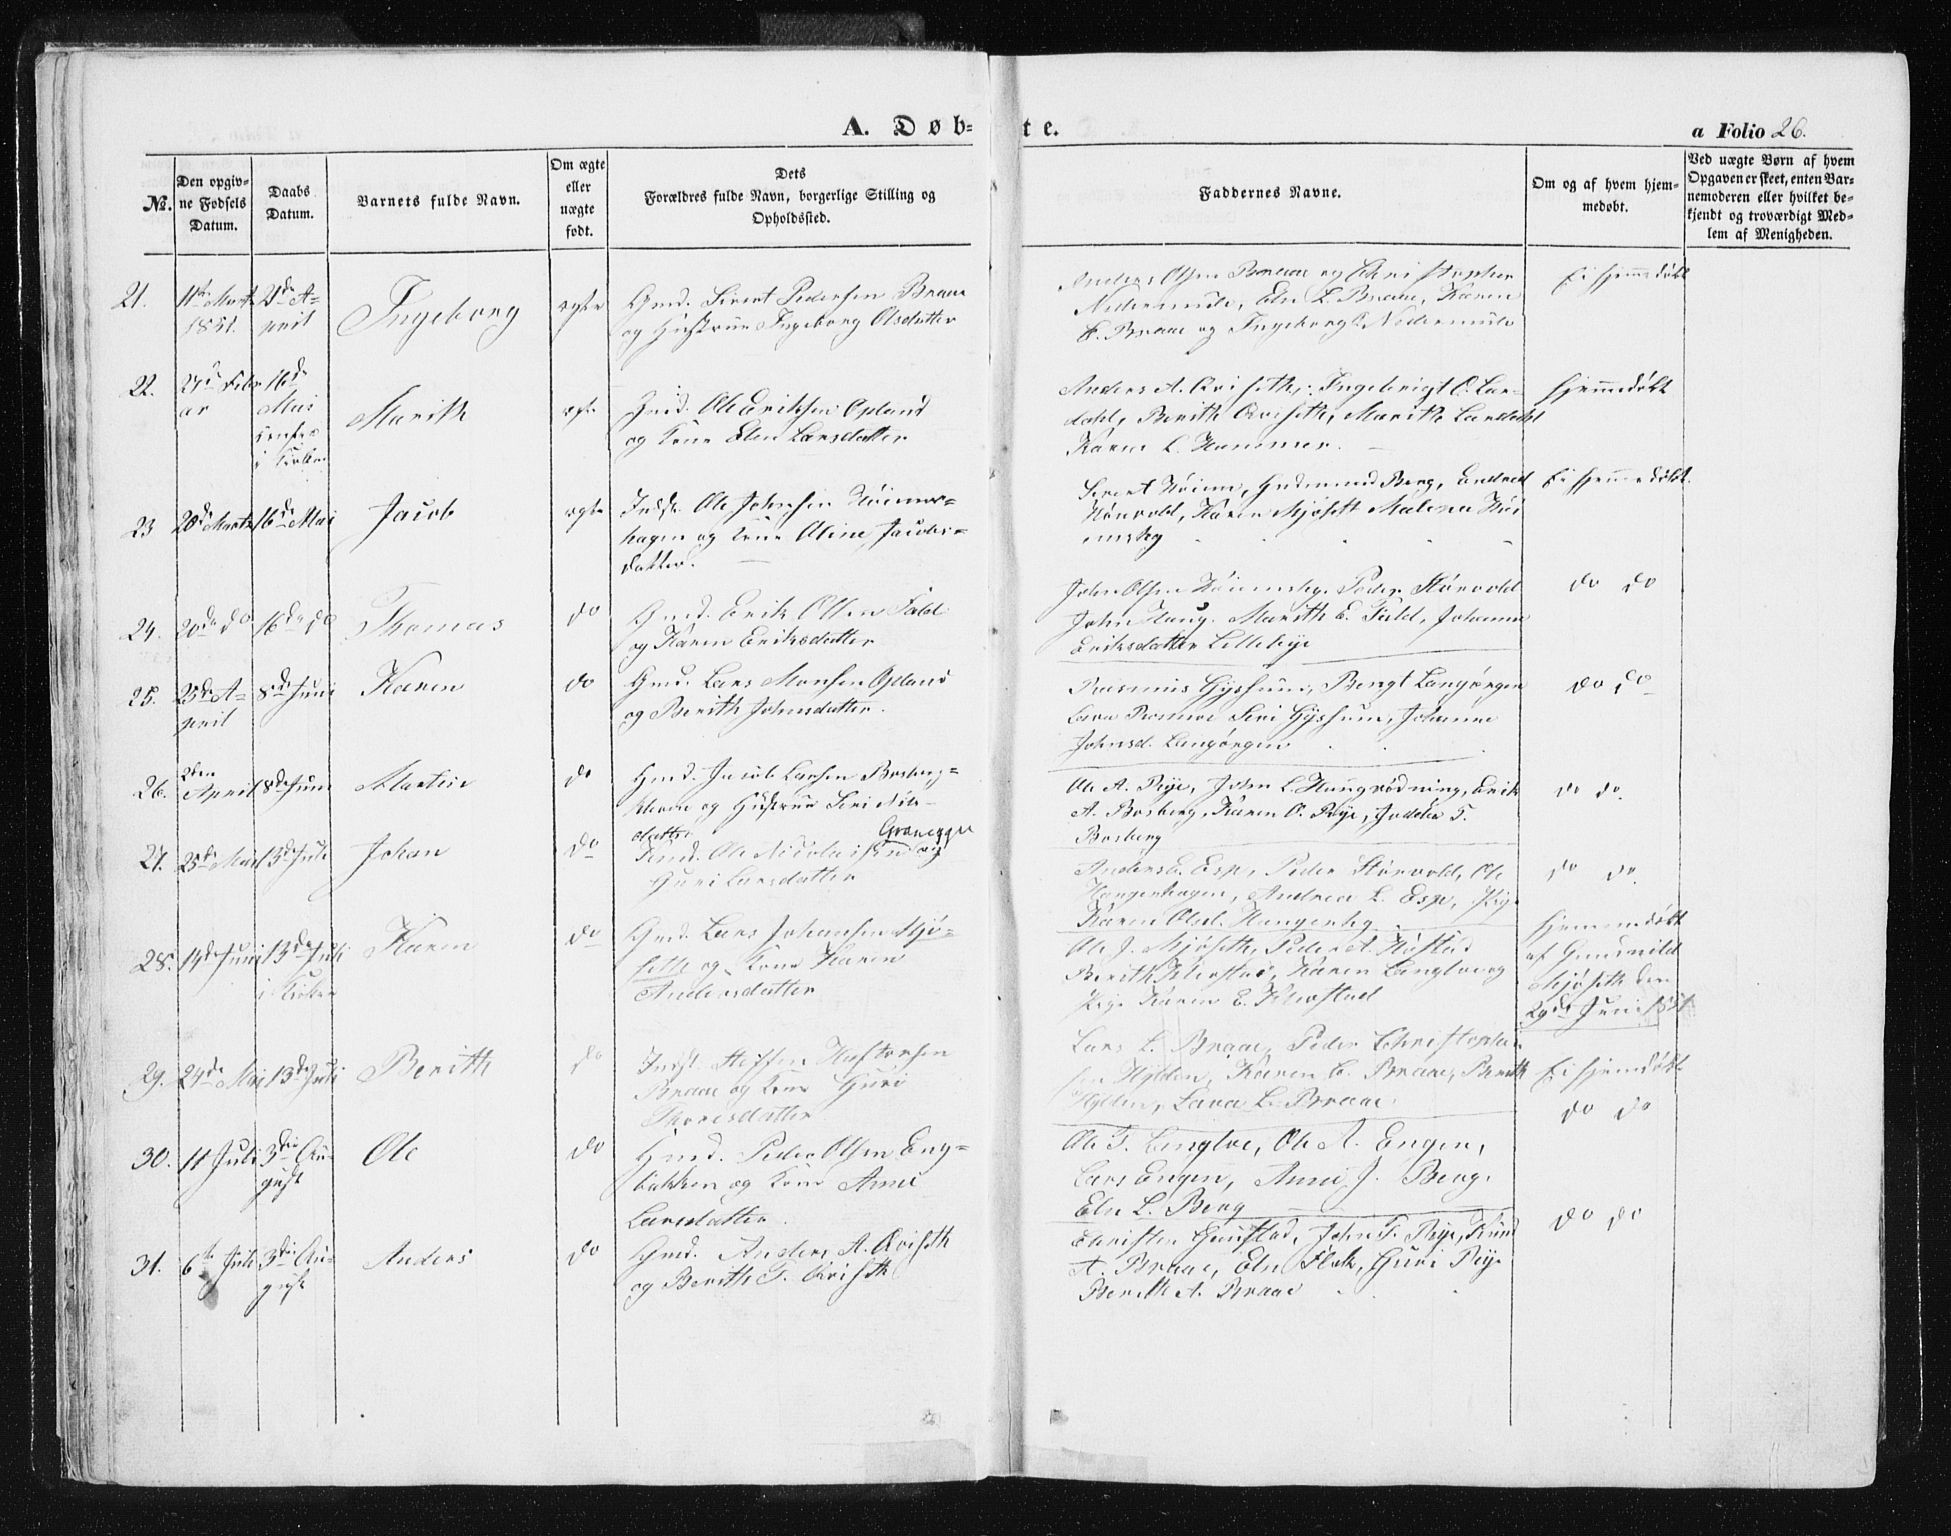 A. Døb-
te.
a Folio 26.
No.
Den opgiv-
ne Fødsels
Datum.
Daabs
Datum.
Barnets fulde Navn.
Om ægte
eller
uægte
født.
Dets
Forældres fulde Navn, borgerlige Stilling og
Opholdssted.
Faddernes Navne.
Om og af hvem hjem-
medøbt.
Ved uægte Børn af hvem
Opgaven er skeet, enten Bar-
nemoderen eller hvilket be-
kjendt og troværdigt Med-
lem af Menigheden.
21.
11te Marts
1851.
21de A-
pril
Ingeborg
ægte
Gmd. Sivert Pedersen Braae
og Hustrue Ingeborg Olsdatter
Anders Olsen Braae og Christopher
Nedermule, Eln L. Braae, Karen
E. Braae og Ingeborg Nedermule
Ei hjemmedøbt
22.
27de Febr
ar
16de
Mai
i Kirken
Marith
ægte
Ole Eriksen Opland
og Kone Eln Larsdatter
Anders A. Qviseth, Ingebrigt O. Lan-
dahl, Berith Qviseth, Marith Landahl
Karen L. Hammer.
hjemmedøbt
23
20de Marts
16de Mai
Jacob
ægte
Indst. Ole Johnsen Høimes-
hagen og Kone Oline Jacobs-
datter.
Sivert Høime, Gudmund Berg, Endred
Størvold, Karen Mjøseth Malena Høi
meshg
Ei hjemmedøbt.
24.
20de do
16de do
Thomas
do
Gmd. Erik Olsen Fald
og Karen Eriksdatter
John Olsen Høimeshg. Peder Størvold
John Haug. Marith E. Fald, Johanna
Eriksdatter Lillebye
do do
25.
25de A-
pril
8de Juni
Karen
do
Gmd. Lars Monsen Opland
og Berith Johnsdatter.
Rasmus Gjelsuun, Bengt Langørgen
Siri Gjelsuun, Johanna
Johnsd. Langørgen
do do
26.
2den
April
8de Juni
Martin
do
Gmd. Jacob Larsen Bosberg-
kleven og Hustrue Siri Niels-
datter
Ole A. Rye, John L. Haugrødning, Erik
A. Bosberg, Karen O. Rye, S.
Bosberg
do do.
27.
25de Mai
13de Juli
Johan
do
Gmd. Ole Nicolaisen Granegge og
Guri Larsdatter
Anders L. Esp, Peder Størvold, Ole
Haugenhagen, Andrea L. Esp, Pig.
Karen Olsd. Haugenhg
do do.
28.
14de Juni
13de Juli
i Kirken
Karen
do
Gmd. Lars Johansen Mjø-
seth og Kone Karen
Andersdatter
Ole J. Mjøseth, Peder A. Høstad
Berith Klevstad, Karen Langlo og
Pige Karen E. Klevstad
hjemmedøbt
af Gunnild
Mjøseth den
29de Juni 1851
29.
24de Mai
13de Juli
Berith
do
Indst. Steffen Haftorsen
Braae og Kone Guri
Thoresdatter
Lars L. Braae, Peder Christopher-
sen Hylden, Karen E. Braae, Berith
Hylden, Sara L. Braae.
Ei hjemdøbt
30.
11 Juli
3die Au-
gust
Ole
do
Gmd. Peder Olsen Eng-
bakken og Kone Anne
Larsdatter.
Ole T. Langloe, Ole A. Engen,
Lars Engen, Anne J. Berg.
Eln L. Berg
do do
31.
6te Juli
3die Au-
gust
Anders
do
Gmd. Anders A. Qviseth
og Berith T. Qviseth
Christen Gunstad, John T. Rye, Knud
A. Braae, Eln Flak, Guri Rye
Berith A. Braae
do do